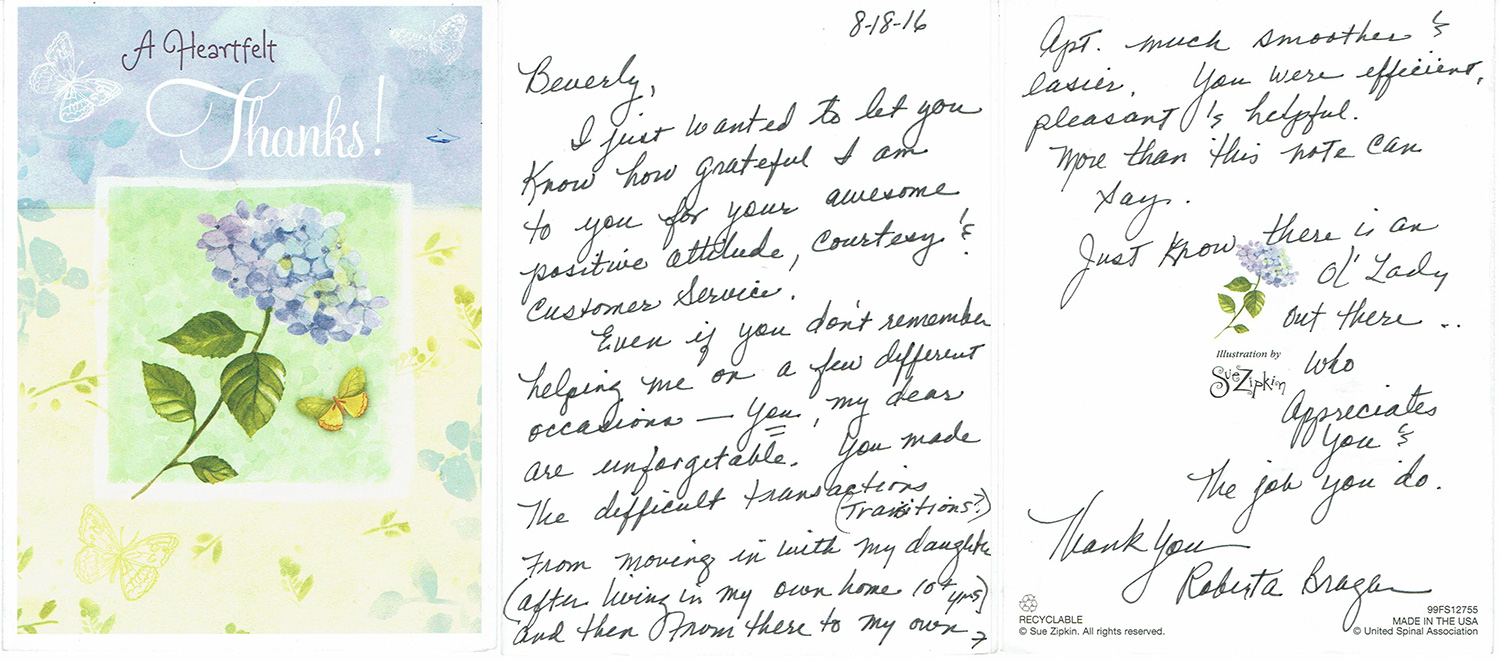 A Heartfelt
Thanks!
8-18-16
Beverly,
I just wanted to let you
Know how grateful I am
to you for your awesome
positive attitude, Courtesy &
Customer Service.
Even if you don't remember
helping me on a few different
occasions — You, my dear
are unforgetable. You made
The difficult transactions
(Transitions?)
From moving in with my daughter
(after living in my own home 10+ yrs)
and then From there to my own →
Apt. much smoother &
easier. You were efficient,
pleasant & helpful.
More than this note can
say.
Just Know there is an
Ol' Lady
out there ...
Who
Appreciates
You &
The job you do.
Thank You
Roberta
Illustration by
Sue Zipkin
RECYCLABLE
© Sue Zipkin. All rights reserved.
99FS12755
MADE IN THE USA
© United Spinal Association